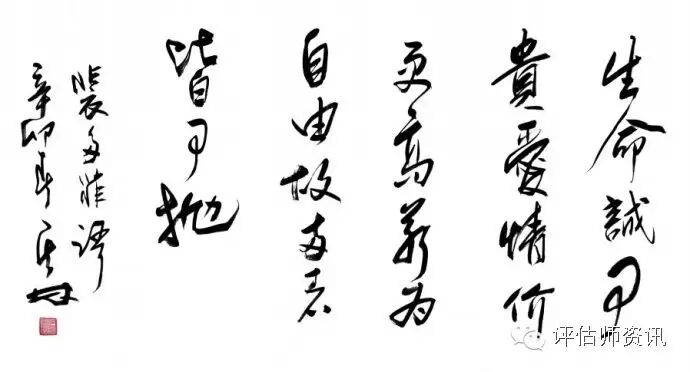 生命誠可
貴愛情价
更高若为
自由故两者
皆可抛
裴多菲
辛卯
评估师资讯